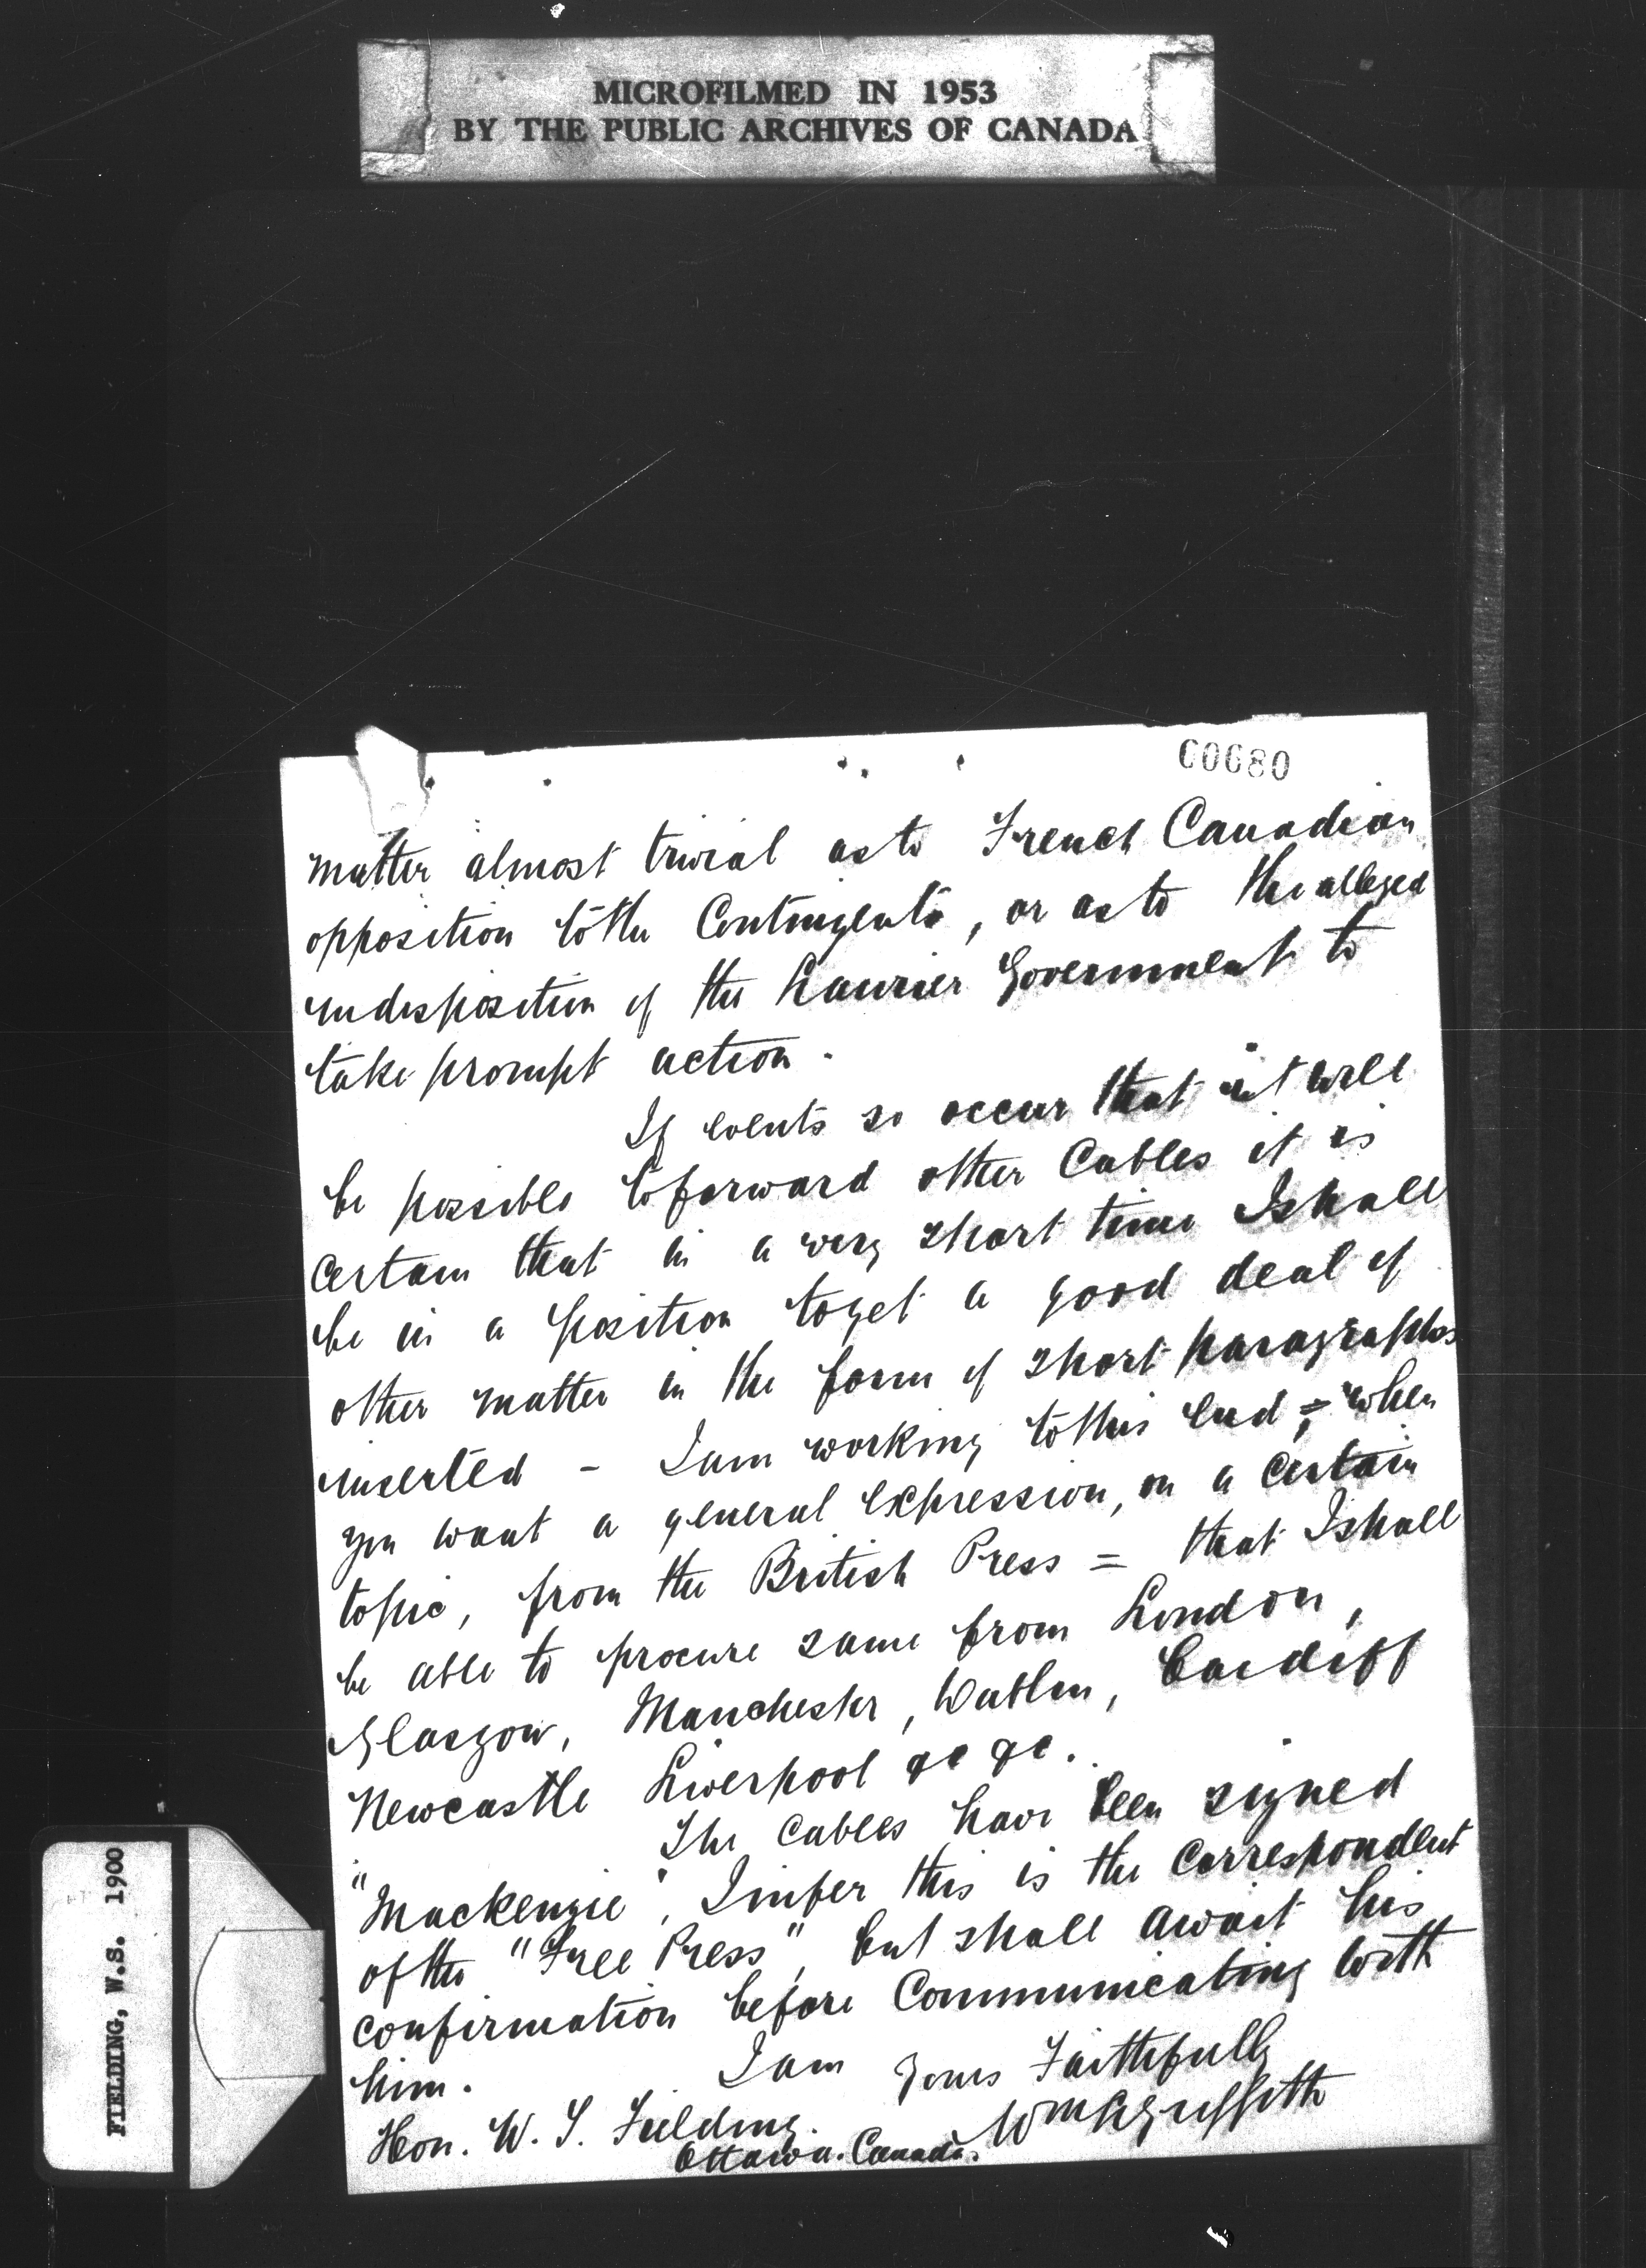 MICROFILMED IN 1953
BY THE PUBLIC ARCHIVES OF CANADA
00680
matter almost trivial as to French Canadian
opposition to the Contingents, or as to the alleged
indisposition of the Laurier Government to
take prompt action.
If events so occur that it will
be possible to forward other Cables it is
certain that in a very short time I shall
be in a position to get a good deal of
other matter in the form of short paragraphs
inserted - I am working to this end; when
you want a general expression, on a certain
topic, from the British Press = that I shall
be able to procure same from London,
Glasgow, Manchester, Dublin, Cardiff
Newcastle Liverpool &c &c.
The cables have been signed
"Mackenzie", I infer this is the correspondent
of the "Free Press", but shall await his
confirmation before Communicating with
him.
I am Yours Faithfully
Hon. W. S. Fielding.
Ottawa. Canada.
Griffith
FIELDING, W.S. 1900